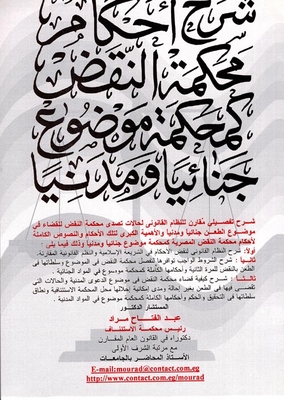 شرح أحكام
محكمة النقض
كمحكمة موضوع
جنائيا ومدنيا
شرح تفصيلي مقارن للنظام القانوني لحالات تصدى محكمة النقض للقضاء في
موضوع الطعن جنائيا ومدنيا والأهمية الكبرى لتلك الأحكام والنصوص الكاملة
لأحكام محكمة النقض المصرية كمحكمة موضوع جنائيا ومدنيا وذلك فيما يلي :
أولا: شرح النظام القانوني لنقض الأحكام في الشريعة الإسلامية والنظم القانونية المقارنة.
ثانيا : شرح الشروط الواجب توافرها لتصدى محكمة النقض في الموضوع وسلطاتها في
الطعن بالنقض للمرة الثانية وأحكامها الكاملة كمحكمة موضوع في المواد الجنائية
ثالثا : شرح كيفية قضاء محكمة النقض في موضوع الدعوى المدنية والحالات التي
تقضى فيها في الطعن بغير إحالة ومدى إمكانية إحلالها محل محكمة الاستئناف ونطاق
سلطاتها في التحقيق والحكم وأحكامها الكاملة كمحكمة موضوع في المواد المدنية .
المستشار الدكتور
عبد الفتاح مراد
رئيس محكمة الاستئناف
دكتوراه في القانون العام المقارن
مع مرتبة الشرف الأولى
الأستاذ المحاضر بالجامعات
E-Mail:mourad@contact.com.eg
http://www.contact.com.eg/mourad